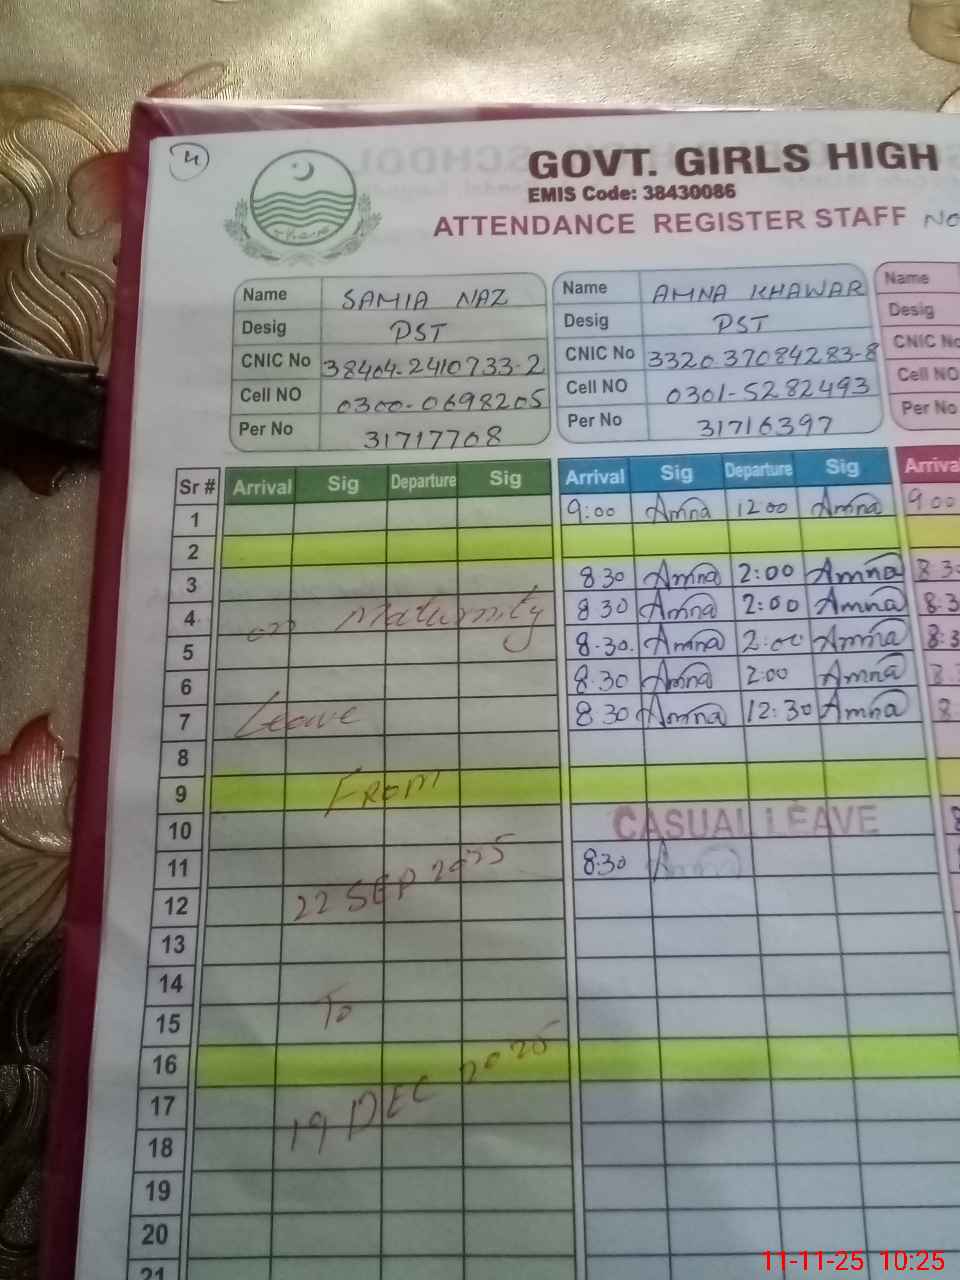 4
GOVT. GIRLS HIGH
EMIS Code: 38430086
ATTENDANCE REGISTER STAFF No
Name SAMIA NAZ
Desig PST
CNIC No 38404-2410733-2
Cell NO 0300-0698205
Per No 31717708
Name AMNA KHAWAR
Desig PST
CNIC No 332037084283-8
Cell NO 0301-5282493
Per No 31716397
Name
Desig
CNIC No
Cell NO
Per No
Sr # Arrival Sig Departure Sig Arrival Sig Departure Sig Arrival
1 9:00 Amna 12 00 Amna 9 00
2
3 8 30 Amna 2:00 Amna 8 30
4 on Maturnity 8 30 Amna 2:00 Amna 8.3
5 8.30. Amna 2:00 Amna 8:3
6 8.30 Amna 2:00 Amna 8.3
7 Leave 8 30 Amna 12:30 Amna 8.
8
9 FROM
10 CASUAL LEAVE 8
11 8:30 Amna
12 22 SEP 2025
13
14
15 To
16
17 19 DEC 2025
18
19
20
21
11-11-25 10:25